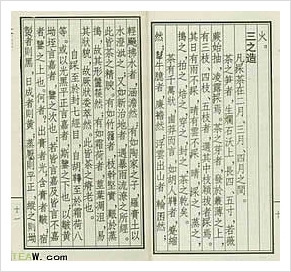 火。
三之造
凡採茶在二月、三月、四月之間。
茶之筍者，生爛石沃土，長四、五寸，若薇
蕨始抽，凌露採焉。茶之牙者，發於叢薄之上，
有三枝、四枝、五枝者，選其中枝穎拔者採焉。
其日有雨不採，晴有雲不採；晴，採之，蒸之，
搗之，拍之，焙之，穿之，封之，茶之乾矣。
茶有千萬狀，鹵莽而言，如胡人鞾者，蹙縮
然；犎牛臆者，廉襜然；浮雲出山者，輪囷然；
輕飈拂水者，涵澹然；有如陶家之子，羅膏土以
水澄泚之；又如新治地者，遇暴雨流潦之所經。
此皆茶之精腴。有如竹籜者，枝幹堅實，艱於蒸
搗，故其形籭簁然；有如霜荷者，莖葉凋沮，易
其狀貌，故厥狀委萃然。此皆茶之瘠老也。
自採至于封七經目，自胡鞾至於霜荷八
等。或以光黑平正言嘉者，斯鑒之下也；以皺黃
坳垤言嘉者，鑒之次也；若皆言嘉及皆言不嘉
者，鑒之上也。何者？出膏者光，含膏者皺；宿
製者則黑，日成者則黃；蒸壓則平正，縱之則坳
TEAW.com